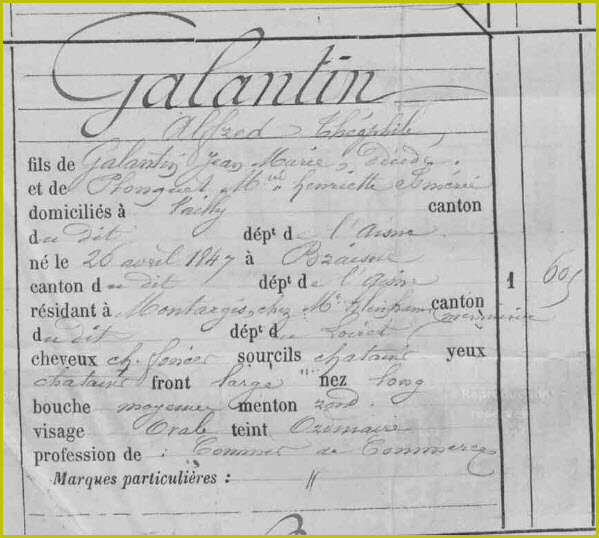 Galantin
Alfred Théophile
fils de Galantin Jean Marie, décédé.
et de Plonquet Mie Henriette Améné
domiciliés à Vailly canton
du dit dépt de l'aisne
né le 26 avril 1847 à Braisne
canton du dit dépt de l'aisne
résidant à Montargis, chez Mr canton
du dit dépt du Loiret
cheveux ch. foncés sourcils chatains yeux
chatains front large nez long
bouche moyenne menton rond.
visage Ovale teint Ordinaire
profession de : Commis de Commerce
Marques particulières : "
1 605
Reproduction
réservée